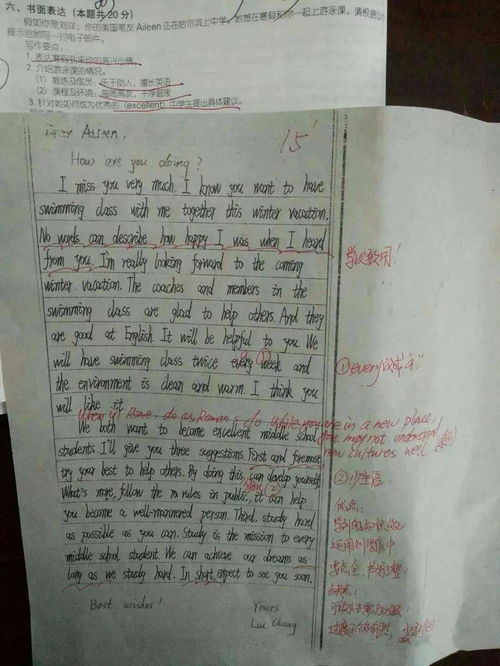 六、书面表达（本题共20分）
假如你是刘洋，你的美国笔友Aileen正在哈尔滨上中学，她想在寒假和你一起上游泳课。请根据
提示给她写一封电子邮件。
写作要点：
1. 表达寒假到来你的高兴心情。
2. 介绍游泳课的情况。
(1) 教练及成员：乐于助人，擅长英语
(2) 课程及环境：每周两次，干净温暖
3. 针对她如何成为优秀的 (excellent) 中学生提出具体建议。
15'
Aileen,
How are you doing?
I miss you very much. I know you want to have
swimming class with me together this winter vacation.
No words can describe how happy I was when I heard
from you. I'm really looking forward to the coming
学以致用!
winter vacation. The coaches and members in the
swimming class are glad to help others. And they
are good at English. It will be helpful to you. We
will have swimming class twice every week and
① every 改成 a
the environment is clean and warm. I think you
will like it.
When in Rome, do as Romans do. While you are in a new place,
you may not understand
new cultures well.
We both want to become excellent middle school
students. I'll give you three suggestions. First and foremost
try your best to help others. By doing this, can develop yourself.
you
② 少主语
What's more, follow the rules in public, it can help
you become a well-mannered person. Third, study hard
as possible as you can. Study is the mission to every
middle school student. We can achieve our dreams as
long as we study hard. In short, expect to see you soon.
优点：
要点全，书写工整!
Best wishes!
Yours